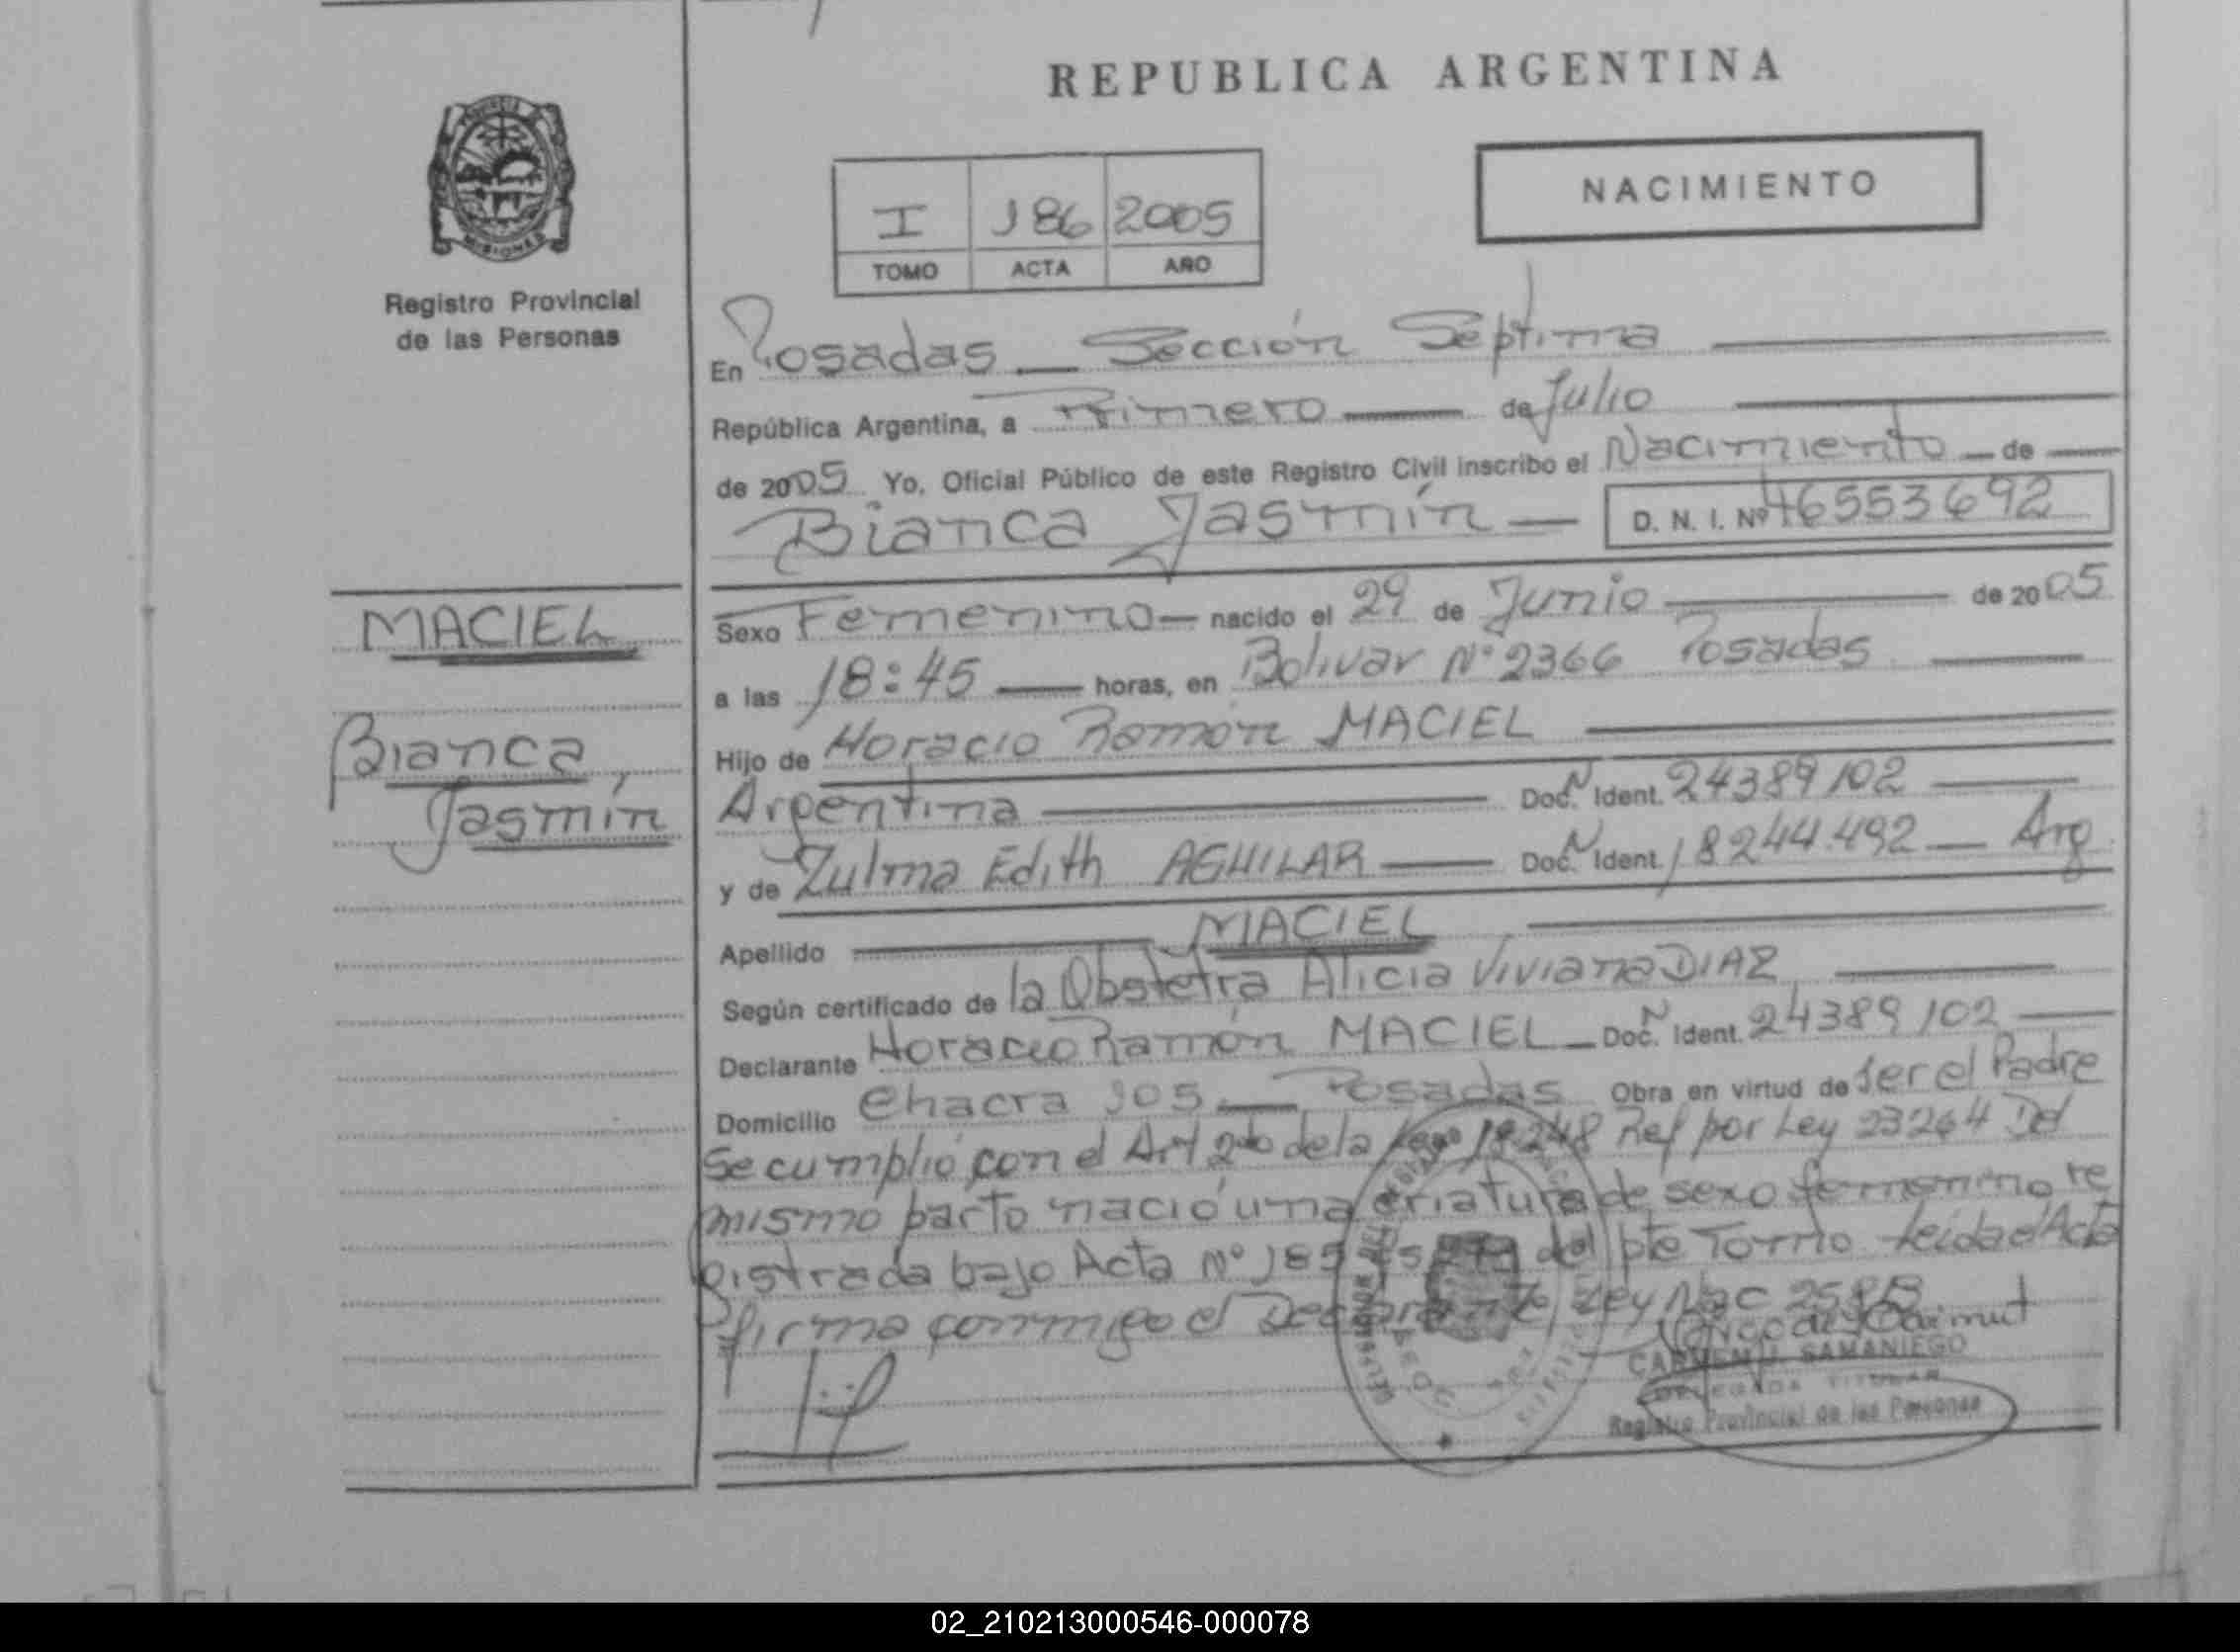 REPUBLICA ARGENTINA
PROVINCIA
MISIONES
Registro Provincial
de las Personas
NACIMIENTO
I 186 2005
TOMO ACTA AÑO
En Posadas — Sección Séptima
República Argentina, a Primero de Julio
de 2005 Yo, Oficial Público de este Registro Civil inscribo el Nacimiento — de
Bianca Jasmín — D. N. I. Nº 46553692
MACIEL
Bianca,
Jasmín
Sexo Femenino — nacido el 29 de Junio de 2005
a las 18:45 horas, en Bolivar Nº 2366 Posadas
Hijo de Horacio Ramón MACIEL
Argentina Doc. N Ident. 24389102
y de Zulma Edith AGUILAR Doc. N Ident. 18244.492 — Arg
Apellido MACIEL
Según certificado de la Obstetra Alicia Viviana DIAZ
Declarante Horacio Ramón MACIEL — Doc. N Ident. 24389102
Domicilio Chacra 105 — Posadas Obra en virtud de ser el Padre
Se cumplió con el Art 2do de la 18248 Ref por Ley 23264 Del
mismo parto nació una criatura de sexo femenino re
gistrada bajo Acta Nº 185 del pte Tomo Leída el Acta
firma conmigo el Declarante Ley Nac
CARMEN J. SAMANIEGO
DELEGADA TITULAR
Registro Provincial de las Personas
02_210213000546-000078